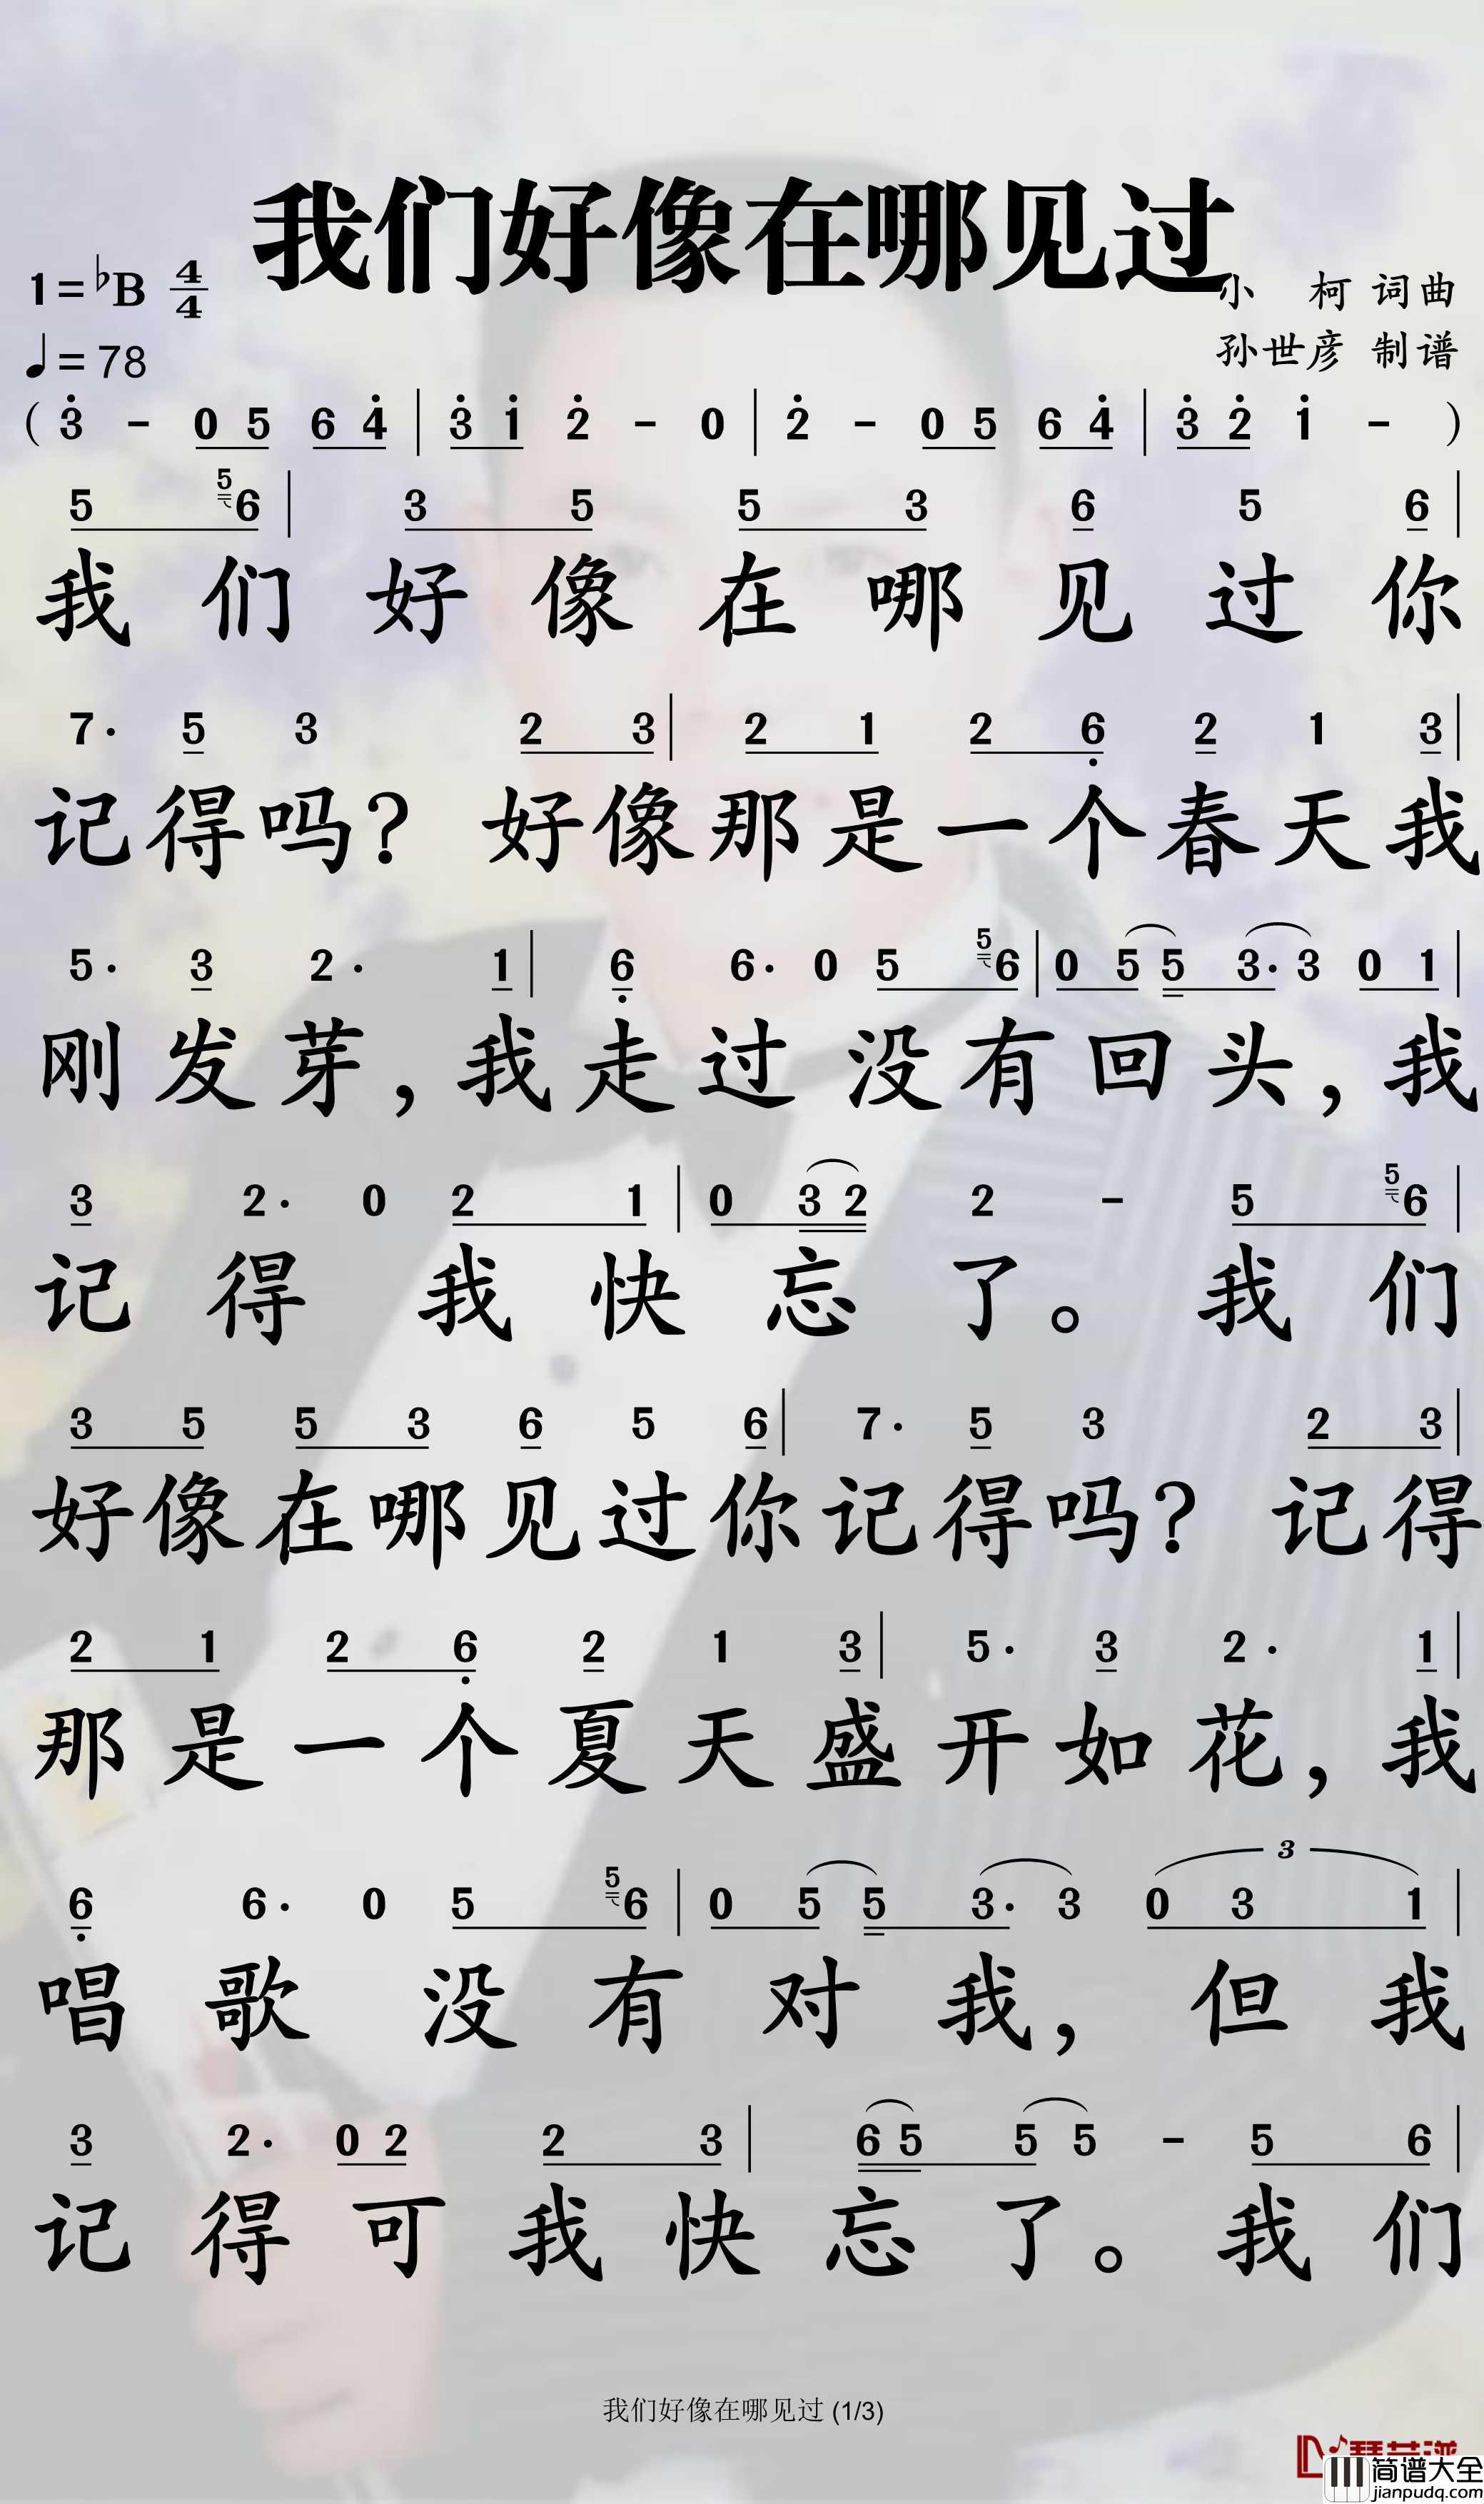 我们好像在哪见过
1=♭B 4/4
小 柯 词曲
♩=78
孙世彦 制谱
( 3̇ - 0 5 6 4̇ | 3̇ 1̇ 2̇ - 0 | 2̇ - 0 5 6 4̇ | 3̇ 2̇ 1̇ - )
5 5 6 | 3 5 5 3 6 5 6 |
我们好像在哪见过你
7· 5 3 2 3 | 2 1 2 6̣ 2 1 3 |
记得吗? 好像那是一个春天我
5· 3 2· 1 | 6̣ 6· 0 5 5 6 | 0 5 5 3· 3 0 1 |
刚发芽,我走过 没有回头,我
3 2· 0 2 1 | 0 3 2 2 - 5 5 6 |
记得 我快忘了。 我们
3 5 5 3 6 5 6 | 7· 5 3 2 3 |
好像在哪见过你记得吗? 记得
2 1 2 6̣ 2 1 3 | 5· 3 2· 1 |
那是一个夏天盛开如花,我
6̣ 6· 0 5 5 6 | 0 5 5 3· 3 3 0 3 1 |
唱歌 没有对我, 但我
3 2· 0 2 2 3 | 6 5 5 5 - 5 6 |
记得可我快忘了。 我们
我们好像在哪见过 (1/3)
简谱大全
jianpudq.com